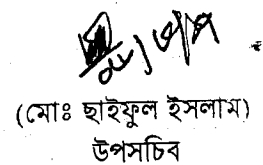 (মোঃ ছাইফুল ইসলাম)
উপসচিব